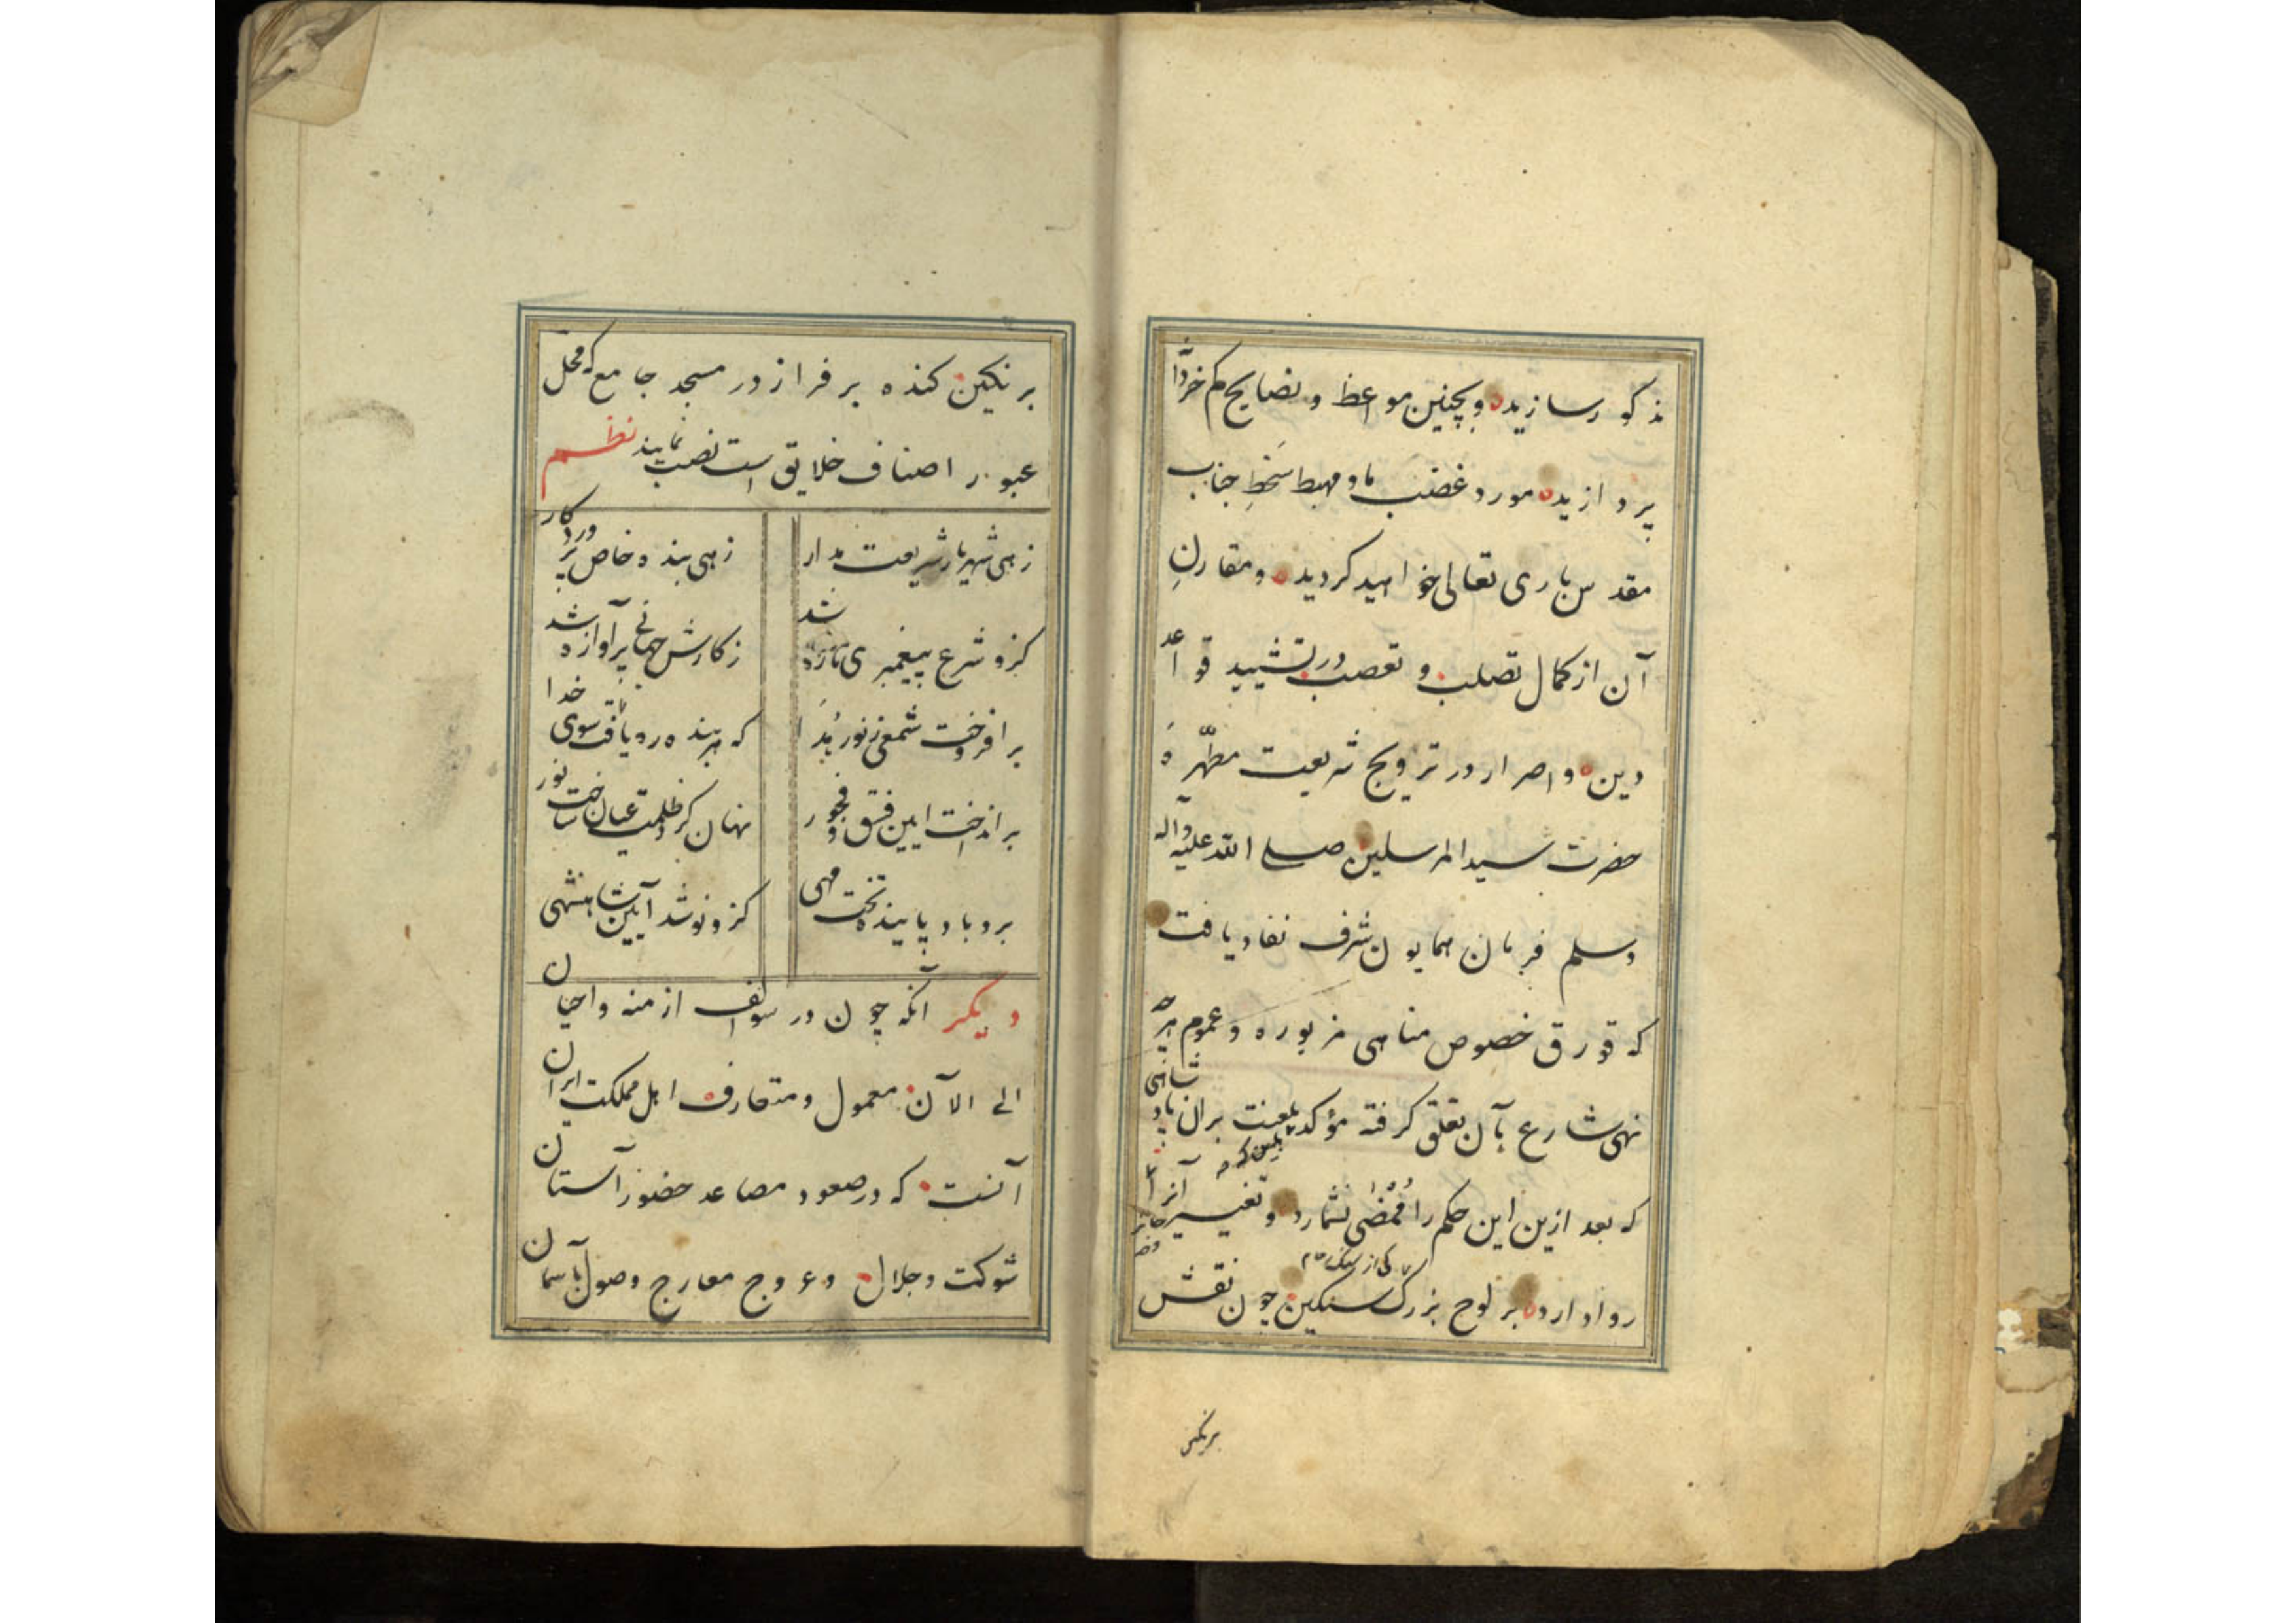 مذکور سازید و بچنین مواعظ و نصایح کم خردا
پردازید مورد غضب ما و مهبط سخط جناب
مقدس باری تعالی خواهید کردید و مقارنِ
آن از کمال تصلب و تعصب در تشیید قواعد
دین و اصرار در ترویج شریعت مطهرهٔ
حضرت سید المرسلین صلی الله علیه وآله
وسلم فرمان همایون شرف نفاد یافت
که قورق خصوص مناهی مزبوره و عموم هرچه
نهی شارع بآن تعلق کرفته مؤکد بلعنت بران پادشاهی
که بعد ازین این حکم را مُمضی نشمارد و تغییر آنرا جائز
روا دارد بر لوح بزرک سنکین چون نقش
برنکین
برنکین کنده بر فراز در مسجد جامع که محل
عبور اصناف خلایق است نصب نمایند نظم
زهی شهریار شریعت مدار زهی بنده خاص پروردکار
کزو شرع پیغمبری تازه شد ز کارش جهانی پرآوازه شد
برافروخت شمعی ز نور هُدَا که هر بنده ره یافت سوی خدا
برانداخت ایین فسق و فجور نهان کرد ظلمت عیان ساخت نور
برو باد پاینده تخت مهی کزو نو شد آیین شاهنشهی
دیکر آنکه چون در سوالف ازمنه و احیان
الی الآن معمول و متعارف اهل مملکت ایران
آنست که در صعود مصاعد حضور آستان
شوکت و جلال و عروج معارج وصول بآسمان